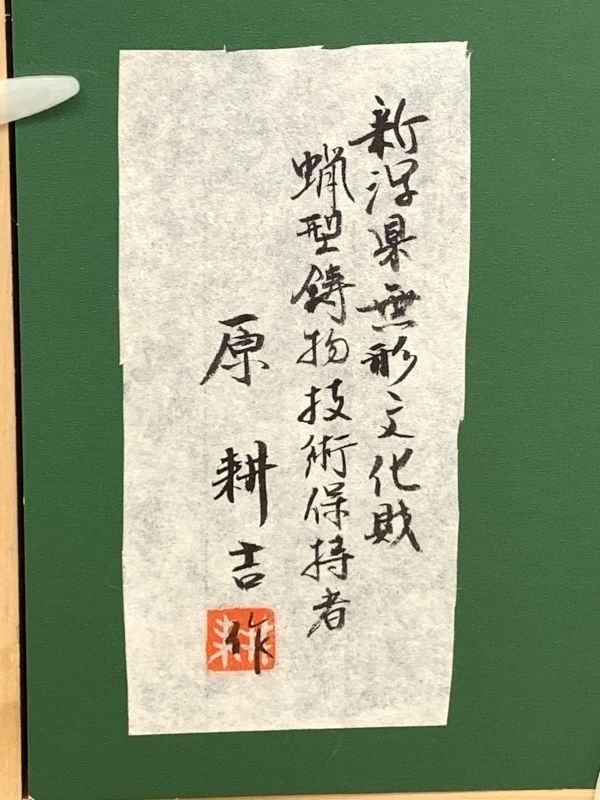 新潟県無形文化財
蝋型鋳物技術保持者
原耕吉作
耕